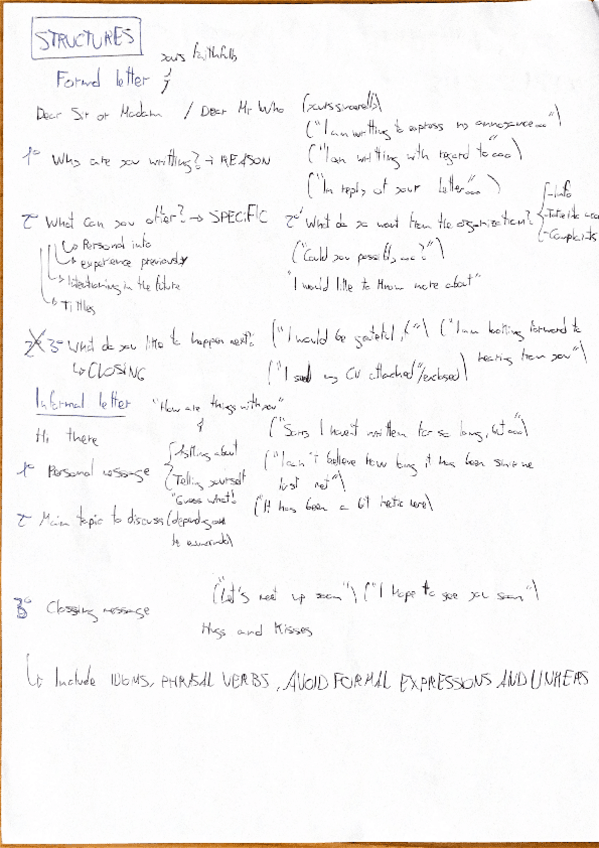 STRUCTURES
yours faithfully
Formal letter
Dear Sir or Madam / Dear Mr Who (yours sincerely)
("I am writting to express my annoyance...")
1º Why are you writting? → REASON ("I am writting with regard to"...)
("In reply of your letter"...)
2º What can you offer? → SPECIFIC 2º' What do you want from the organization? - Info
- Complaints
Personal info ("Could you possibly ...?")
experience previously
Intentioning in the future "I would like to know more about"
Tittles
3º What do you like to happen next? ("I would be grateful, if") ("I am looking forward to
hearing from you")
CLOSING ("I send my CV attached"/enclosed)
Informal letter "How are things with you"
Hi there ("Sorry I haven't written for so long, but ...")
Asking about
1º Personal message Telling yourself ("I can't believe how long it has been since we
last met")
"Guess what!" ("It has been a bit hectic here)
2º Main topic to discuss (depending on
("Let's meet up soon") ("I hope to see you soon")
3º Clossing message
Hugs and Kisses
Include IDIOMS, PHRASAL VERBS, AVOID FORMAL EXPRESSIONS AND LINKERS